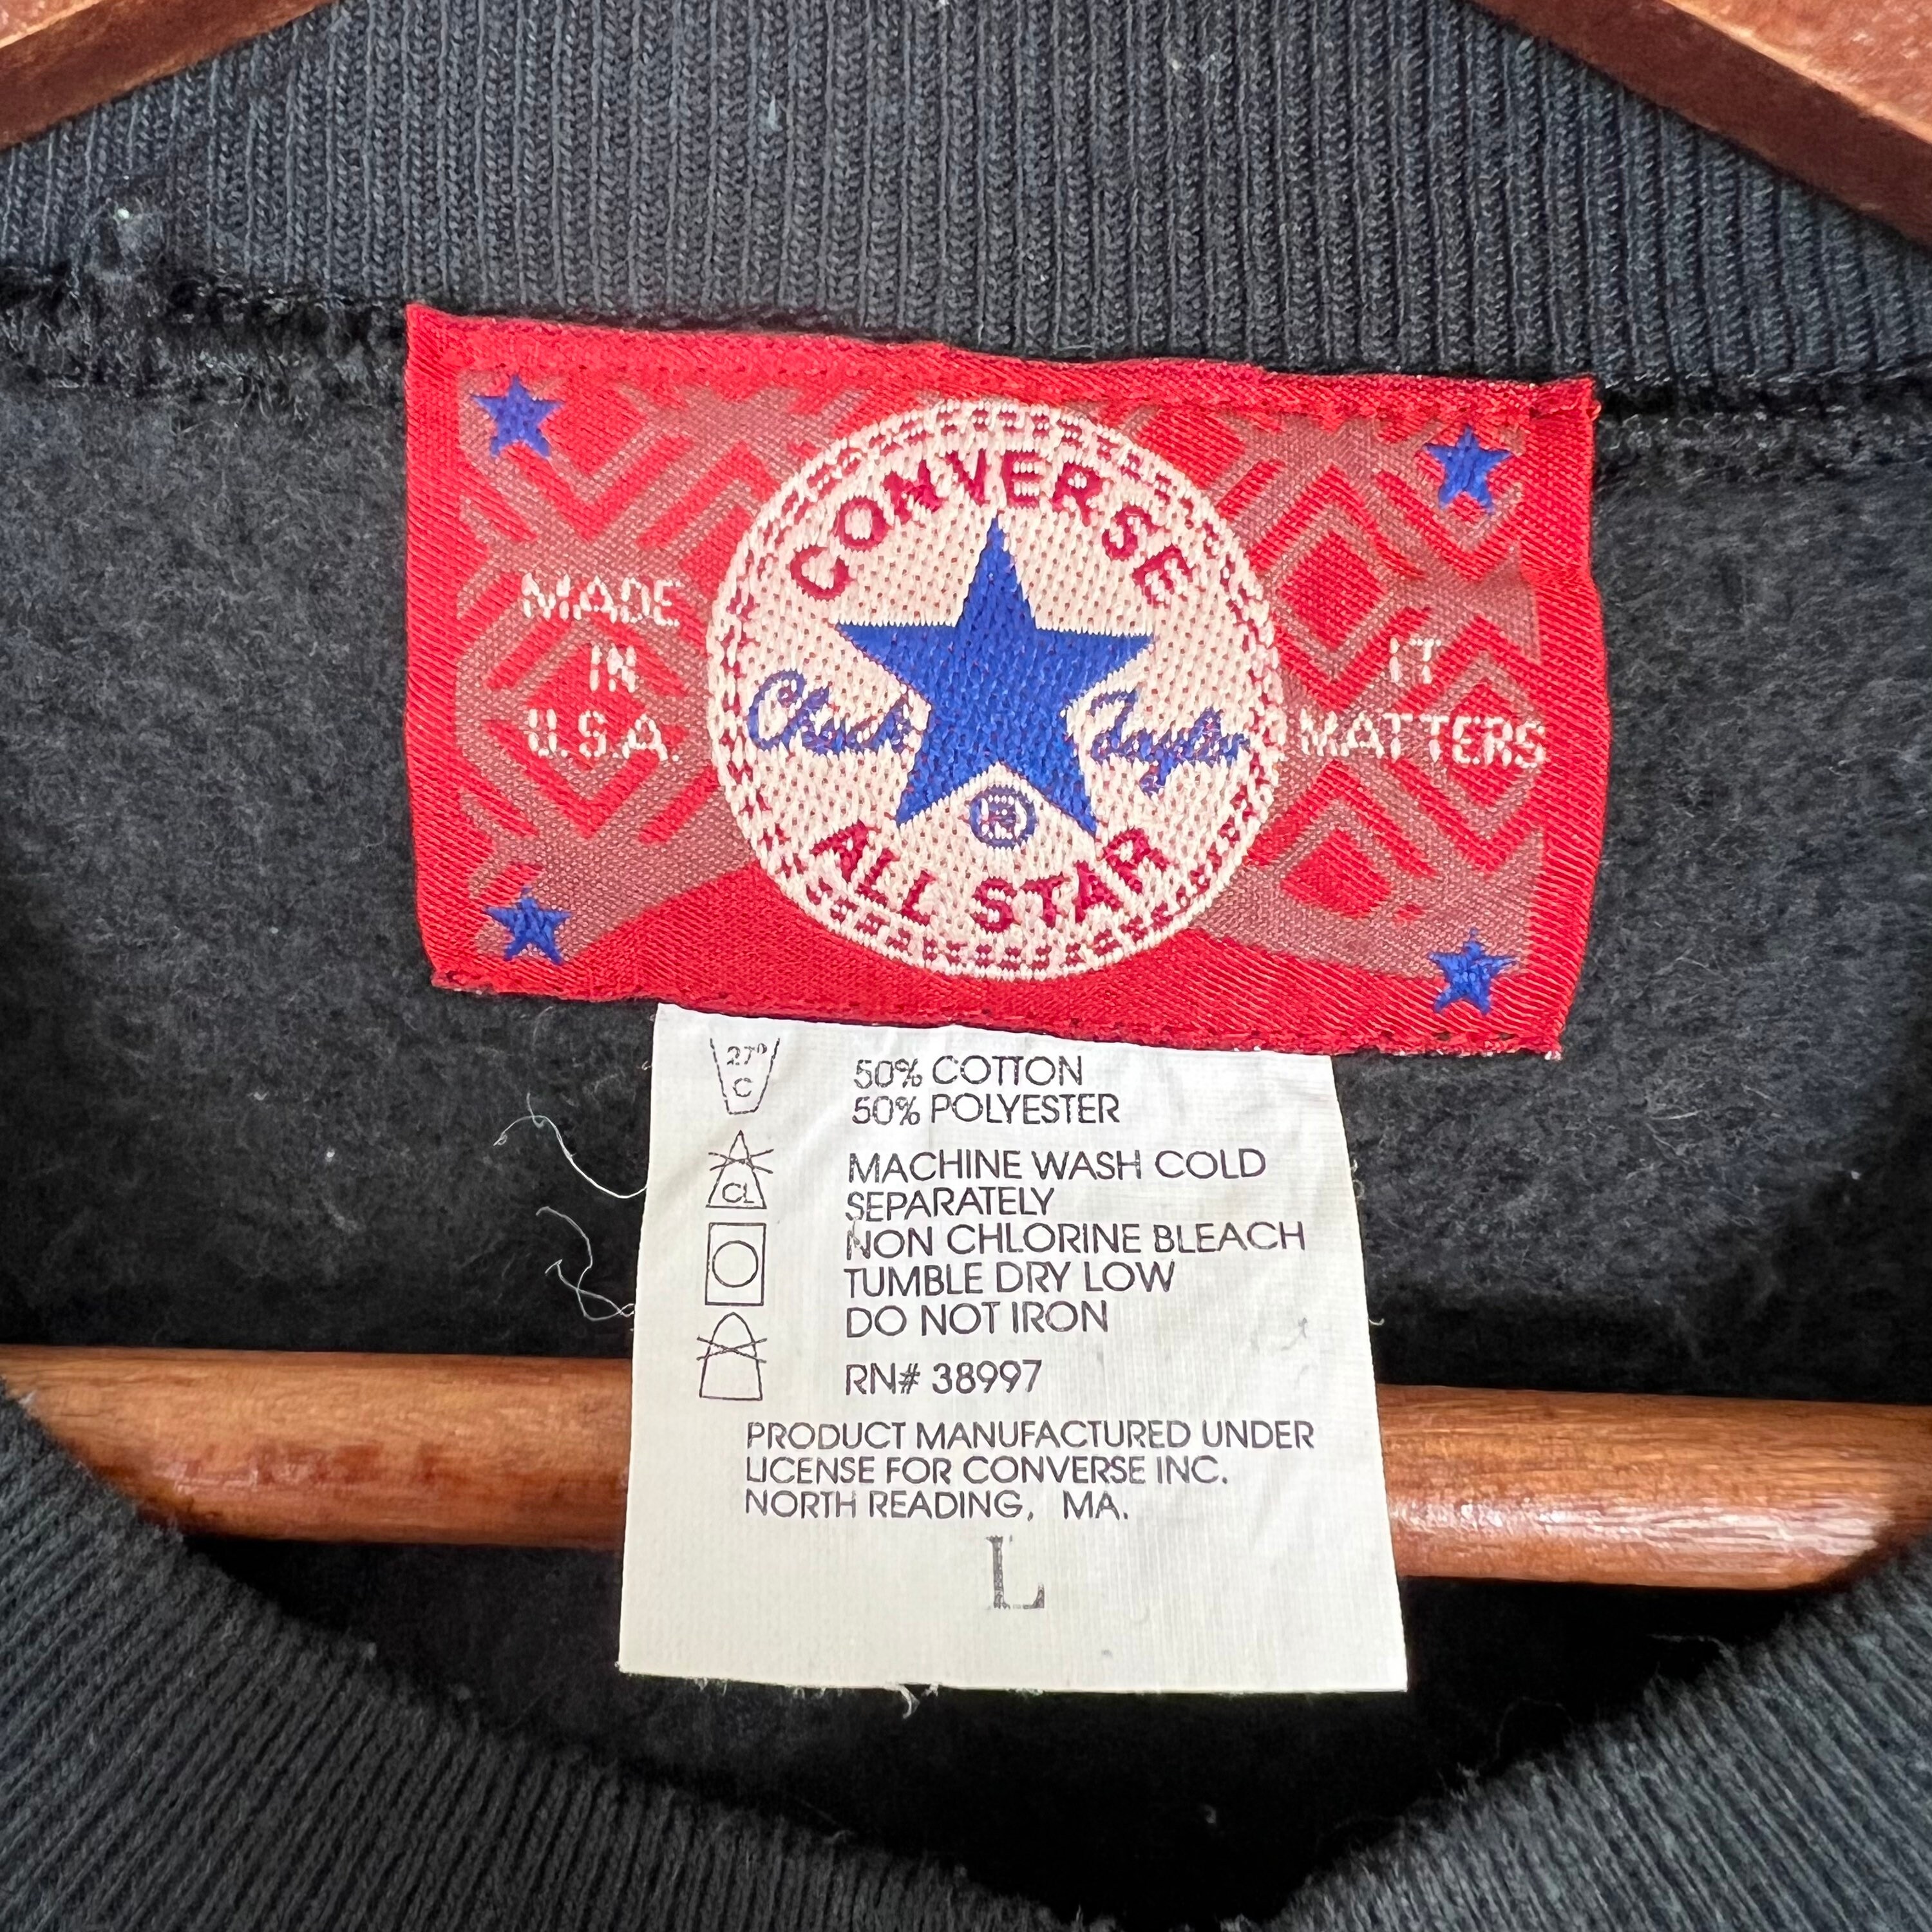 MADE
IN
U.S.A.
CONVERSE
Chuck Taylor
®
ALL STAR
IT
MATTERS
27°
C
CL
50% COTTON
50% POLYESTER
MACHINE WASH COLD
SEPARATELY
NON CHLORINE BLEACH
TUMBLE DRY LOW
DO NOT IRON
RN# 38997
PRODUCT MANUFACTURED UNDER
LICENSE FOR CONVERSE INC.
NORTH READING, MA.
L